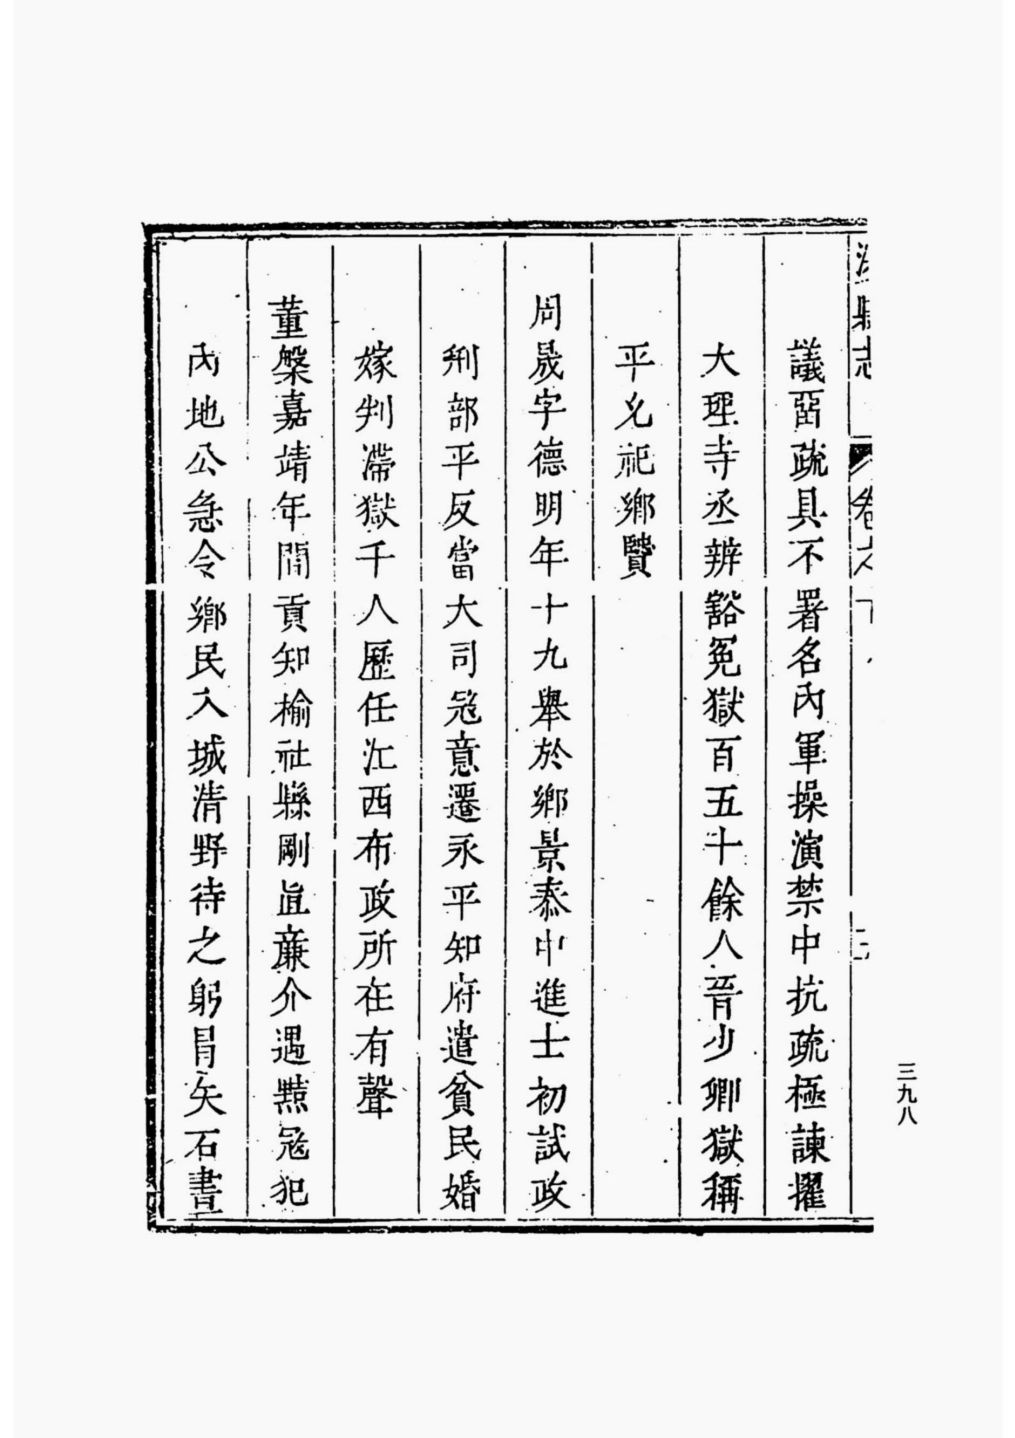 縣志 卷 下
議罶疏具不署名內軍操演禁中抗疏極諫擢
大理寺丞辨豁冤獄百五十餘人晉少卿獄稱
平允祀鄉賢
周晟字德明年十九舉於鄉景泰中進士初試政
刑部平反當大司冦意遷永平知府遣貧民婚
嫁判滯獄千人歷任江西布政所在有聲
董槃嘉靖年間貢知榆社縣剛直廉介遇黠冦犯
內地公急令鄉民入城清野待之躬冒矢石晝
三九八